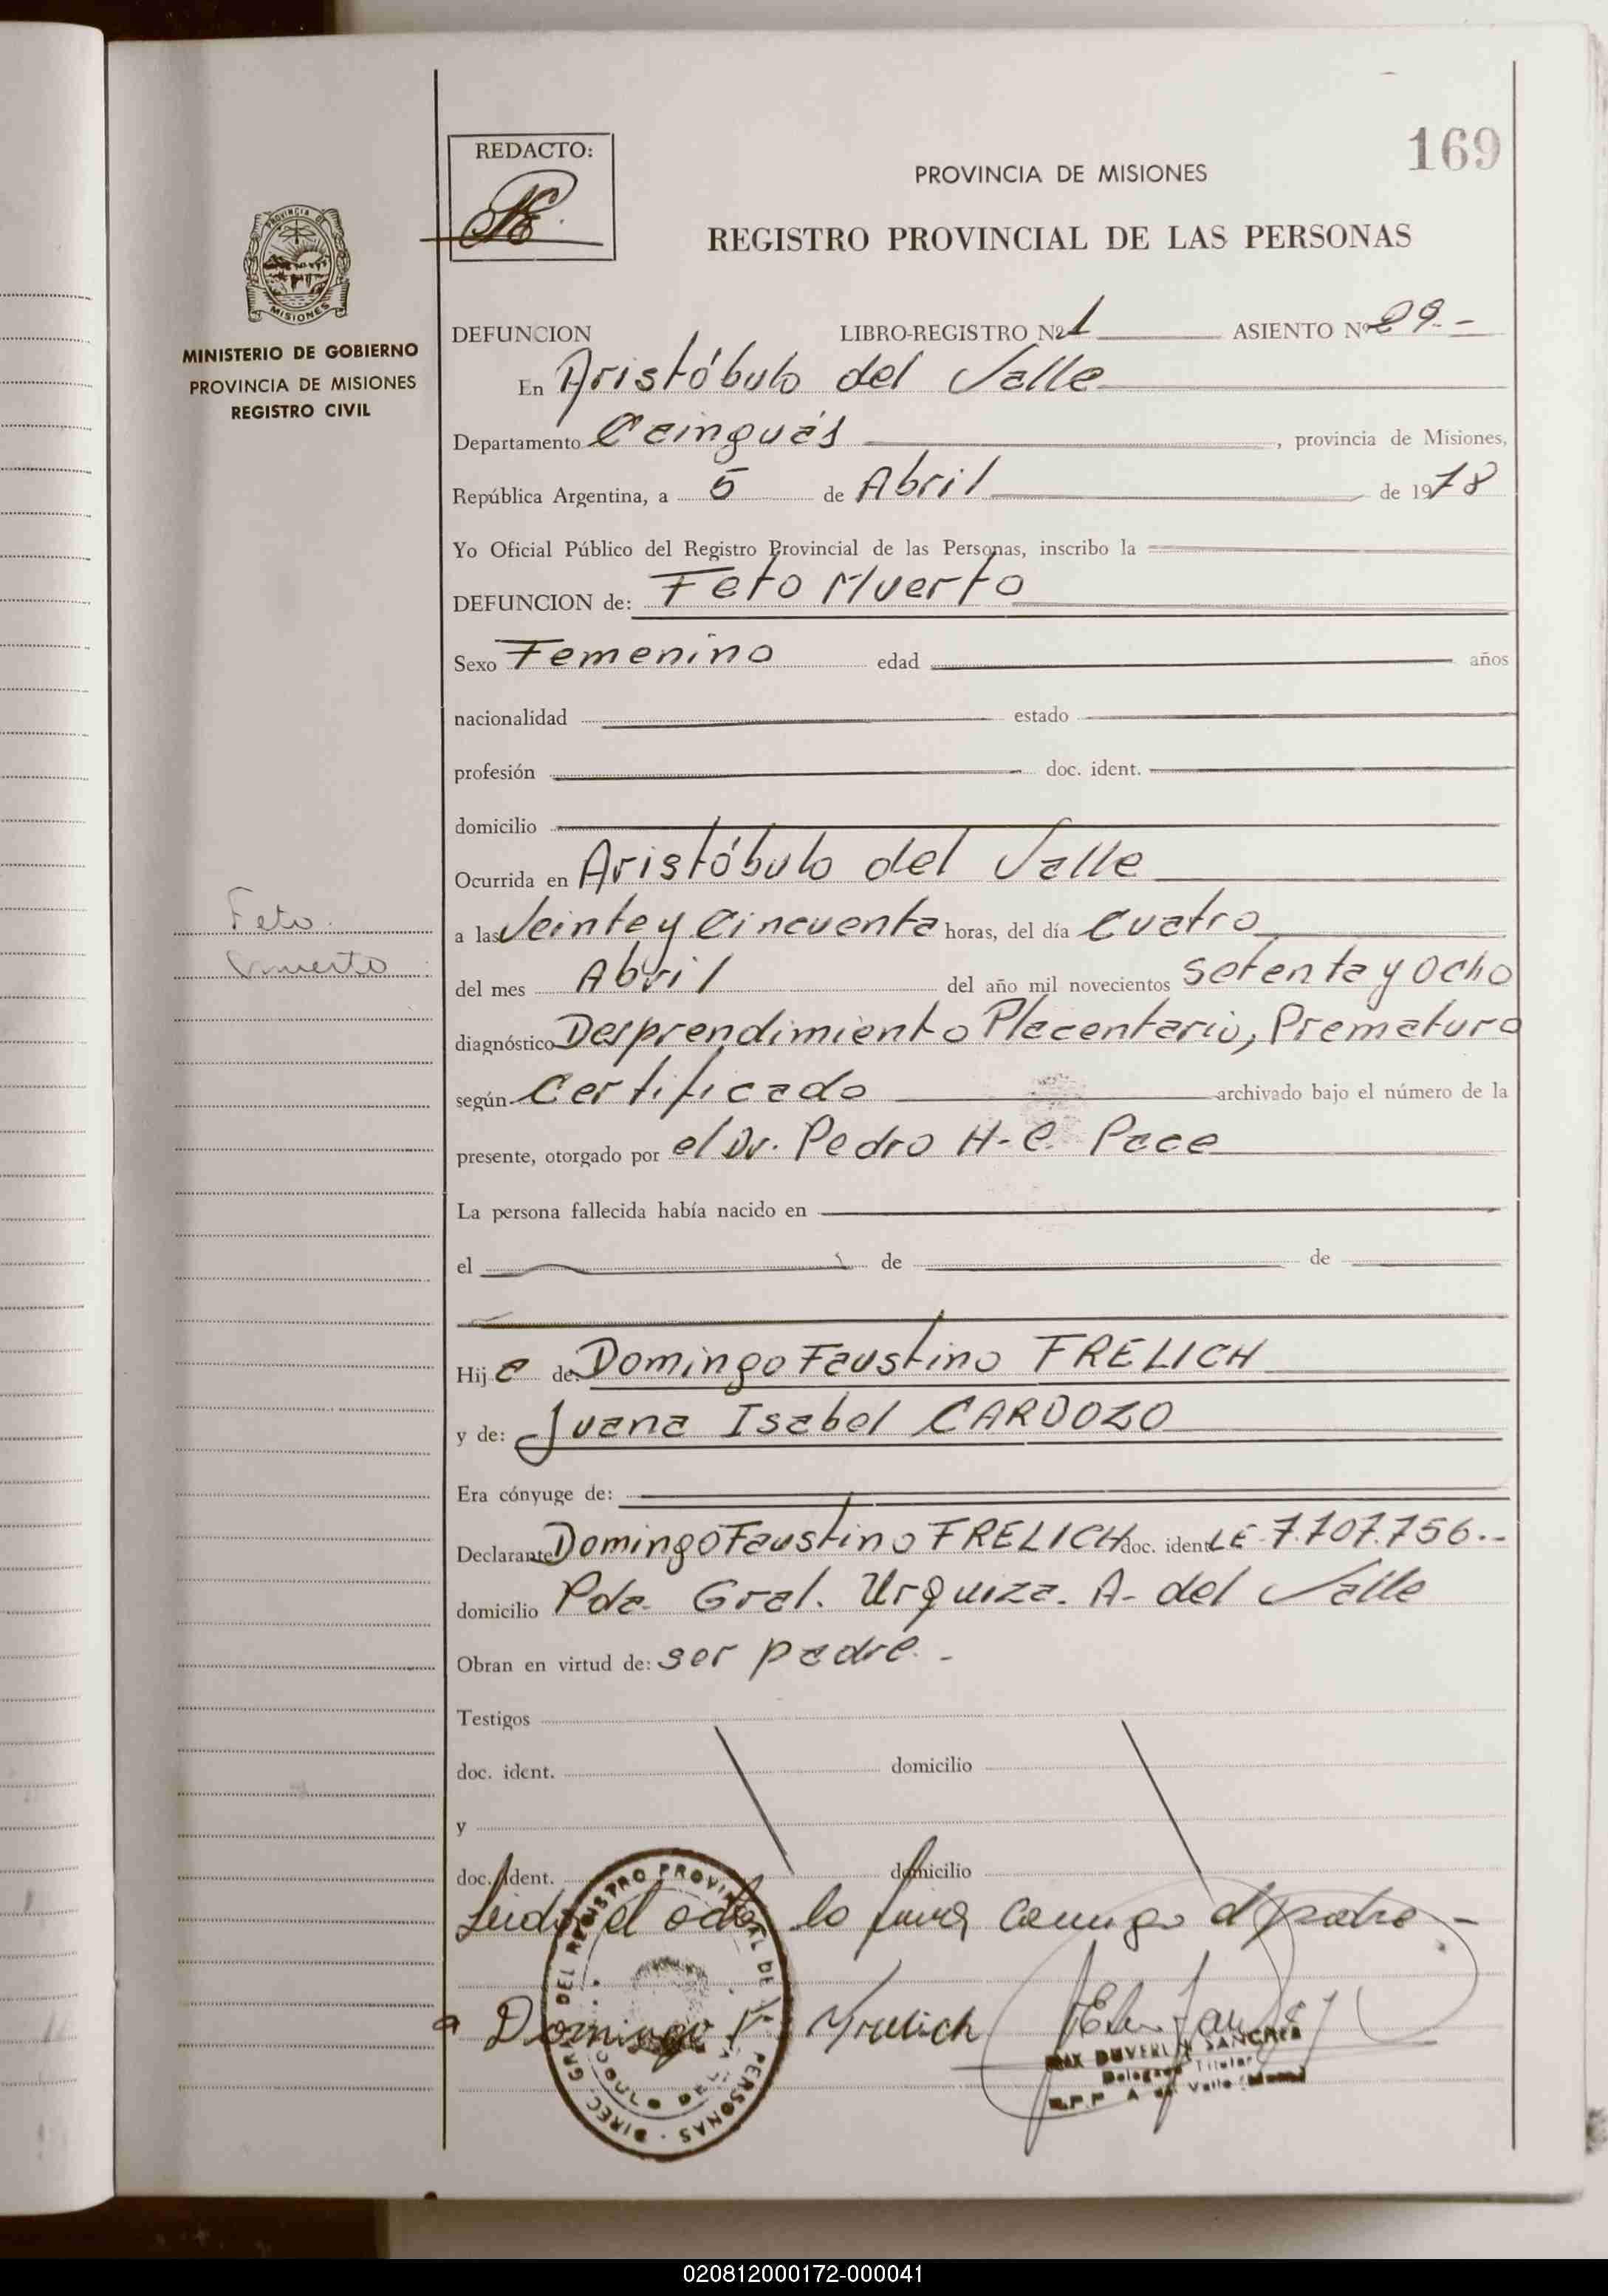 169
REDACTO:
PROVINCIA DE MISIONES
REGISTRO PROVINCIAL DE LAS PERSONAS
PROVINCIA DE
MISIONES
MINISTERIO DE GOBIERNO
PROVINCIA DE MISIONES
REGISTRO CIVIL
DEFUNCION LIBRO-REGISTRO Nº 1 ASIENTO Nº 29.-
En Aristóbulo del Valle
Departamento Cainguás, provincia de Misiones,
República Argentina, a 5 de Abril de 1978
Yo Oficial Público del Registro Provincial de las Personas, inscribo la
DEFUNCION de: Feto Muerto
Sexo Femenino edad años
nacionalidad estado
profesión doc. ident.
domicilio
Ocurrida en Aristóbulo del Valle
Feto
muerto
a las Veinte y Cincuenta horas, del día Cuatro
del mes Abril del año mil novecientos setenta y Ocho
diagnóstico Desprendimiento Placentario, Prematuro
según Certificado archivado bajo el número de la
presente, otorgado por el Dr. Pedro H. C. Pace
La persona fallecida había nacido en
el de de
Hija de: Domingo Faustino FRELICH
y de: Juana Isabel CARDOZO
Era cónyuge de:
Declarante Domingo Faustino FRELICH doc. ident. LE 7.707.756.-
domicilio Pda. Gral. Urquiza. A- del Valle
Obran en virtud de: ser padre.-
Testigos
doc. ident. domicilio
y
doc. ident. domicilio
Leido el acta lo firma conmigo el padre -
Domingo F. Frelich
DIREC. GRAL. DEL REGISTRO PROVINCIAL DE PERSONAS
SANCHEZ
Delegado Titular
R.P.P. A. del Valle
020812000172-000041